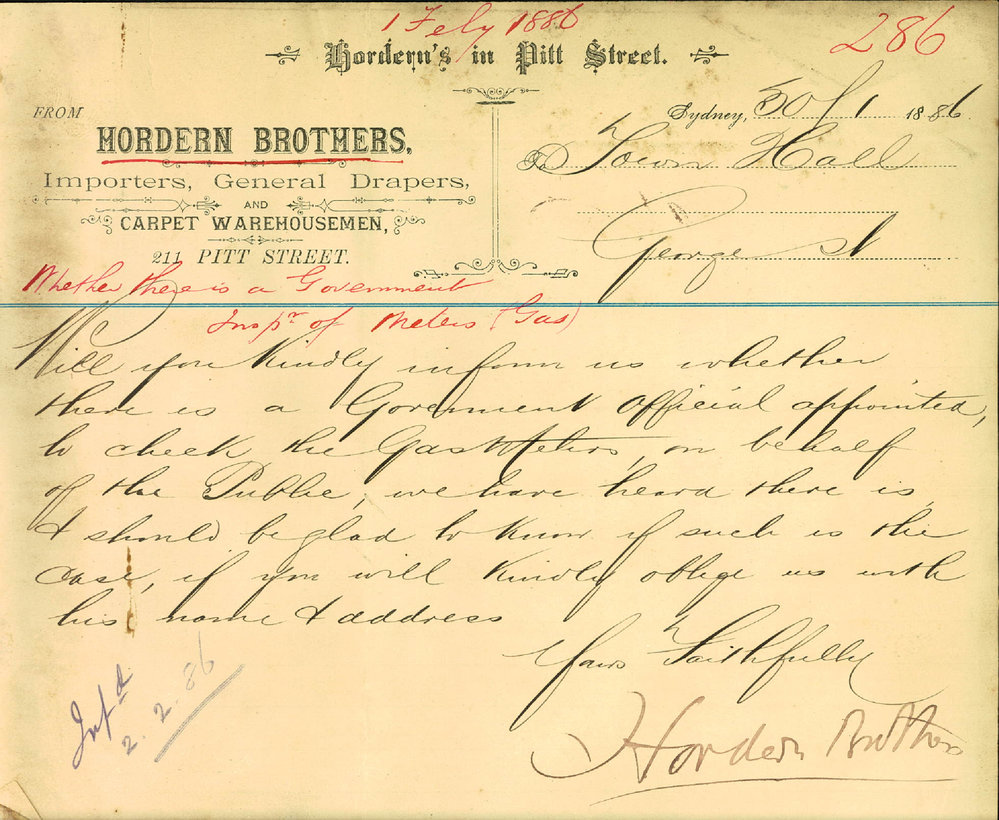 1 Feby 1886
286
Hordern's in Pitt Street.
FROM
HORDERN BROTHERS,
Importers, General Drapers,
AND
CARPET WAREHOUSEMEN,
211 PITT STREET.
Sydney, 30/1 1886
To Town Hall
George St
Whether there is a Government
Inspr of Meters (Gas)
Will you kindly inform us whether
there is a Goverment Official appointed,
to check the Gas Meters, on behalf
of the Public, we have heard there is,
& should be glad to know if such is the
case, if you will kindly oblige us with
his name & address
Yours Faithfully
Hordern Brothers
Infd
2.2.86